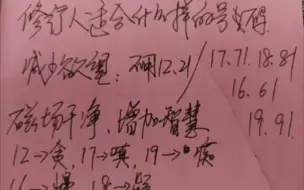 修行人适合什么样的号码
减少欲望：不用12.21/17.71.18.81
16.61
19.91.
磁场干净、增加智慧
12→贪，17→嗔，19→痴
16→慢 18→疑